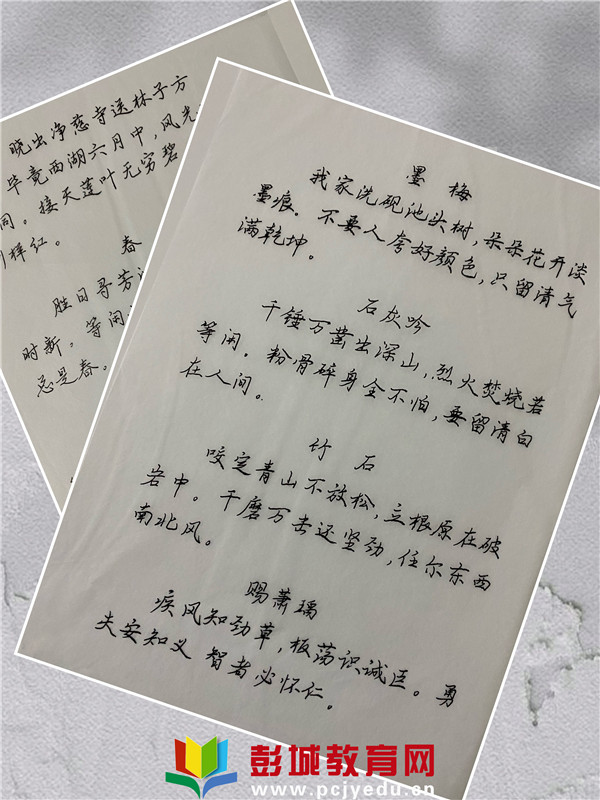 晓出净慈寺送林子方
毕竟西湖六月中，风光
同。接天莲叶无穷碧
样红。
春
胜日寻芳
时新。等闲
总是春。
墨梅
我家洗砚池头树，朵朵花开淡
墨痕。不要人夸好颜色，只留清气
满乾坤。
石灰吟
千锤万凿出深山，烈火焚烧若
等闲。粉骨碎身全不怕，要留清白
在人间。
竹石
咬定青山不放松，立根原在破
岩中。千磨万击还坚劲，任尔东西
南北风。
赐萧瑀
疾风知劲草，板荡识诚臣。勇
夫安知义 智者必怀仁。
彭城教育网
www.pcjyedu.cn